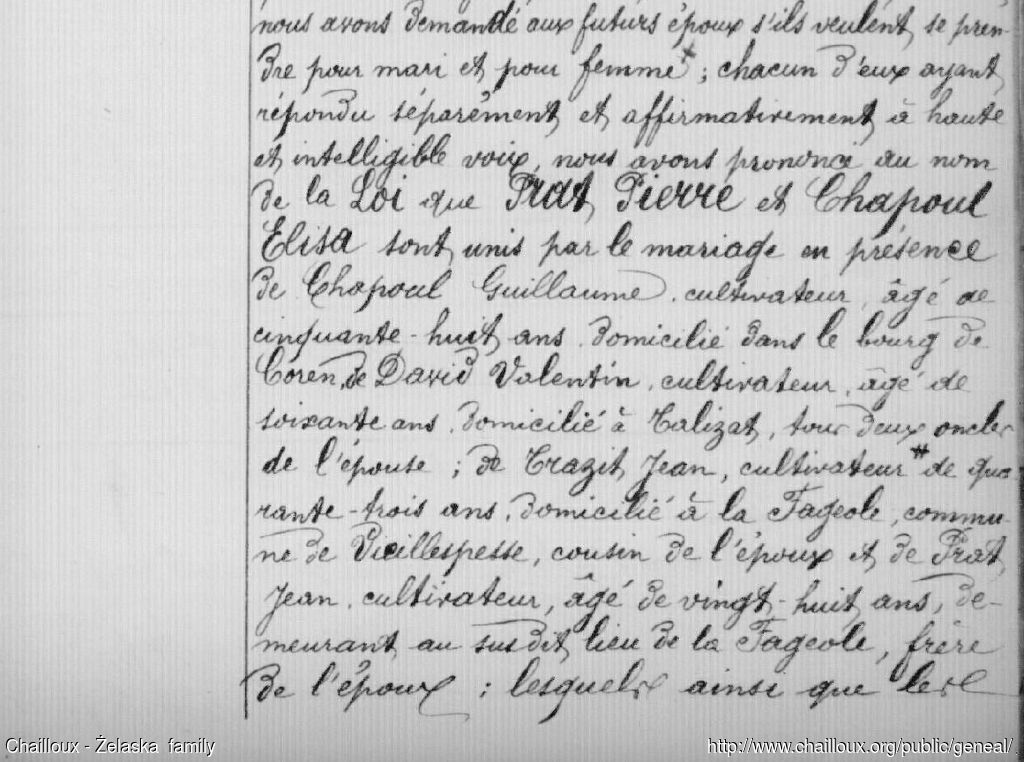 nous avons demandé aux futurs époux s'ils veulent se pren-
dre pour mari et pour femme x ; chacun d'eux ayant
répondu séparément et affirmativement à haute
et intelligible voix, nous avons prononcé au nom
de la Loi que Prat Pierre et Chapoul
Elisa sont unis par le mariage en présence
de Chapoul Guillaume, cultivateur, âgé de
cinquante-huit ans, domicilié dans le bourg de
Coren, de David Valentin, cultivateur, âgé de
soixante ans, domicilié à Talizat, tous deux oncles
de l'épouse ; de Trazit Jean, cultivateur # de qua-
rante-trois ans, domicilié à la Fageole, commu-
ne de Vieillespesse, cousin de l'époux et de Prat
Jean, cultivateur, âgé de vingt-huit ans, de-
meurant au susdit lieu de la Fageole, frère
de l'époux ; lesquels ainsi que les
Chailloux - Želaska family
http://www.chailloux.org/public/geneal/